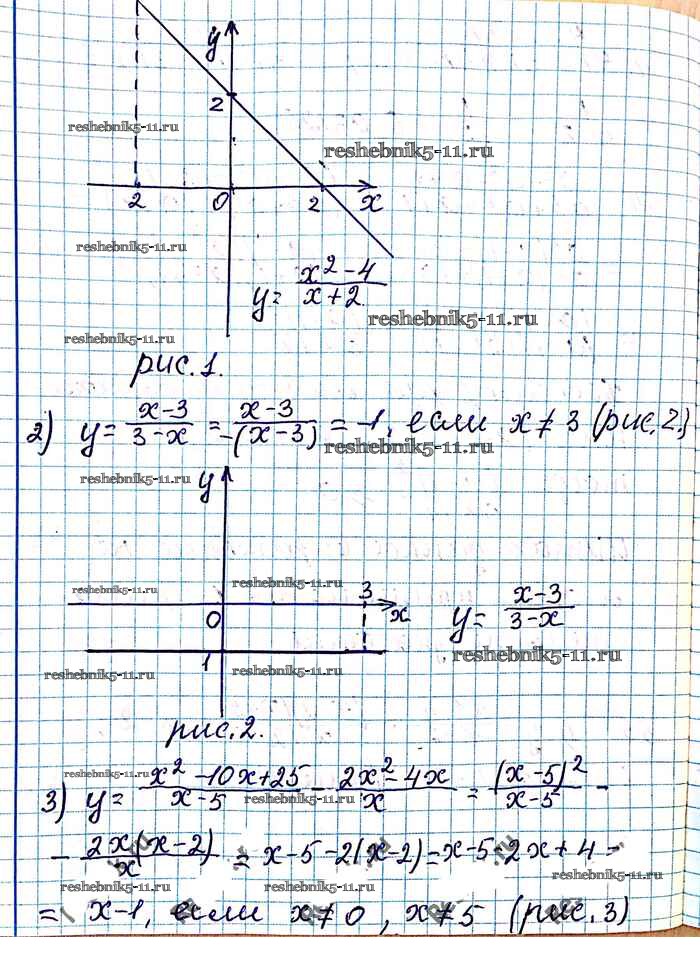 y
2
reshebnik5-11.ru
reshebnik5-11.ru
2 0 2 x
reshebnik5-11.ru
y = (x² - 4)/(x + 2)
reshebnik5-11.ru
reshebnik5-11.ru
рис. 1.
2) y = (x-3)/(3-x) = (x-3)/(-(x-3)) = -1, если x ≠ 3 (рис. 2.)
reshebnik5-11.ru
reshebnik5-11.ru
y
reshebnik5-11.ru
reshebnik5-11.ru
3
0 x
y = (x-3)/(3-x)
1
reshebnik5-11.ru
reshebnik5-11.ru
reshebnik5-11.ru
рис. 2.
3) y = (x² - 10x + 25)/(x - 5) - (2x² - 4x)/x = (x - 5)²/(x - 5) -
reshebnik5-11.ru
reshebnik5-11.ru
- 2x(x - 2)/x = x - 5 - 2(x - 2) = x - 5 - 2x + 4 =
reshebnik5-11.ru
reshebnik5-11.ru
reshebnik5-11.ru
= x - 1, если x ≠ 0, x ≠ 5 (рис. 3)